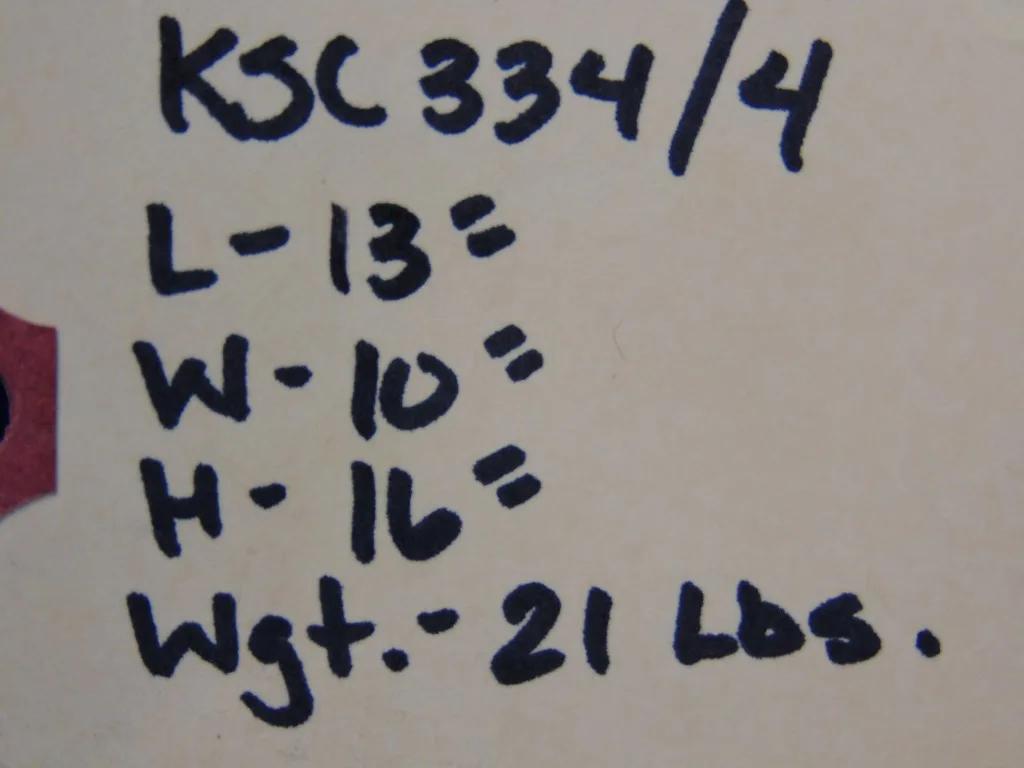 KSC 334/4
L-13"
W-10"
H-16"
Wgt.-21 Lbs.